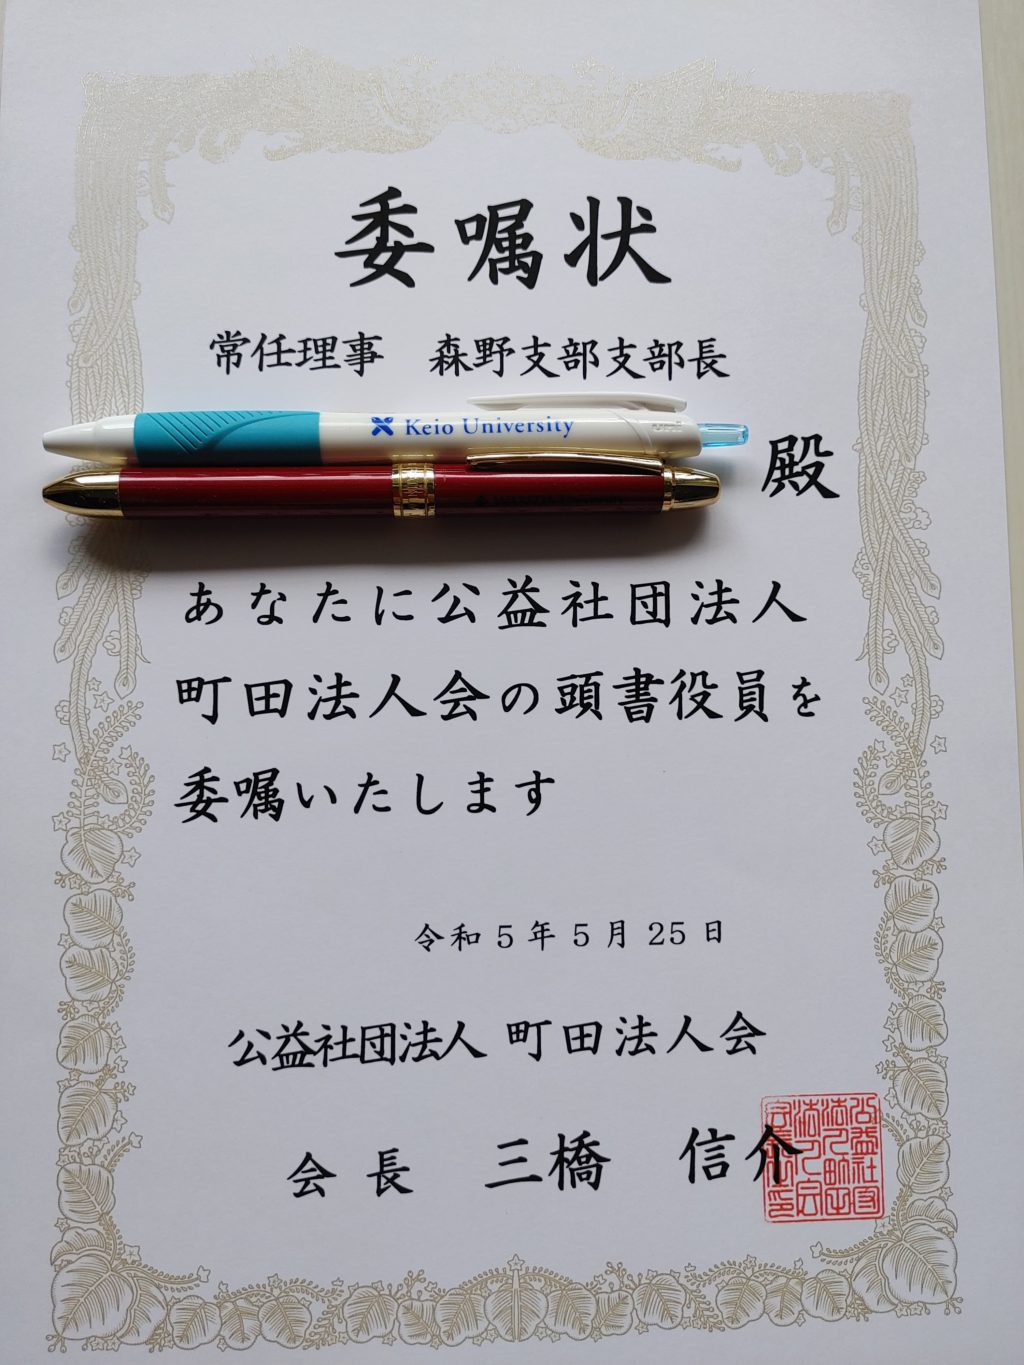 委嘱状
常任理事　森野支部支部長
Keio University
uni
University
殿
あなたに公益社団法人
町田法人会の頭書役員を
委嘱いたします
令和5年5月25日
公益社団法人 町田法人会
会長　三橋　信介